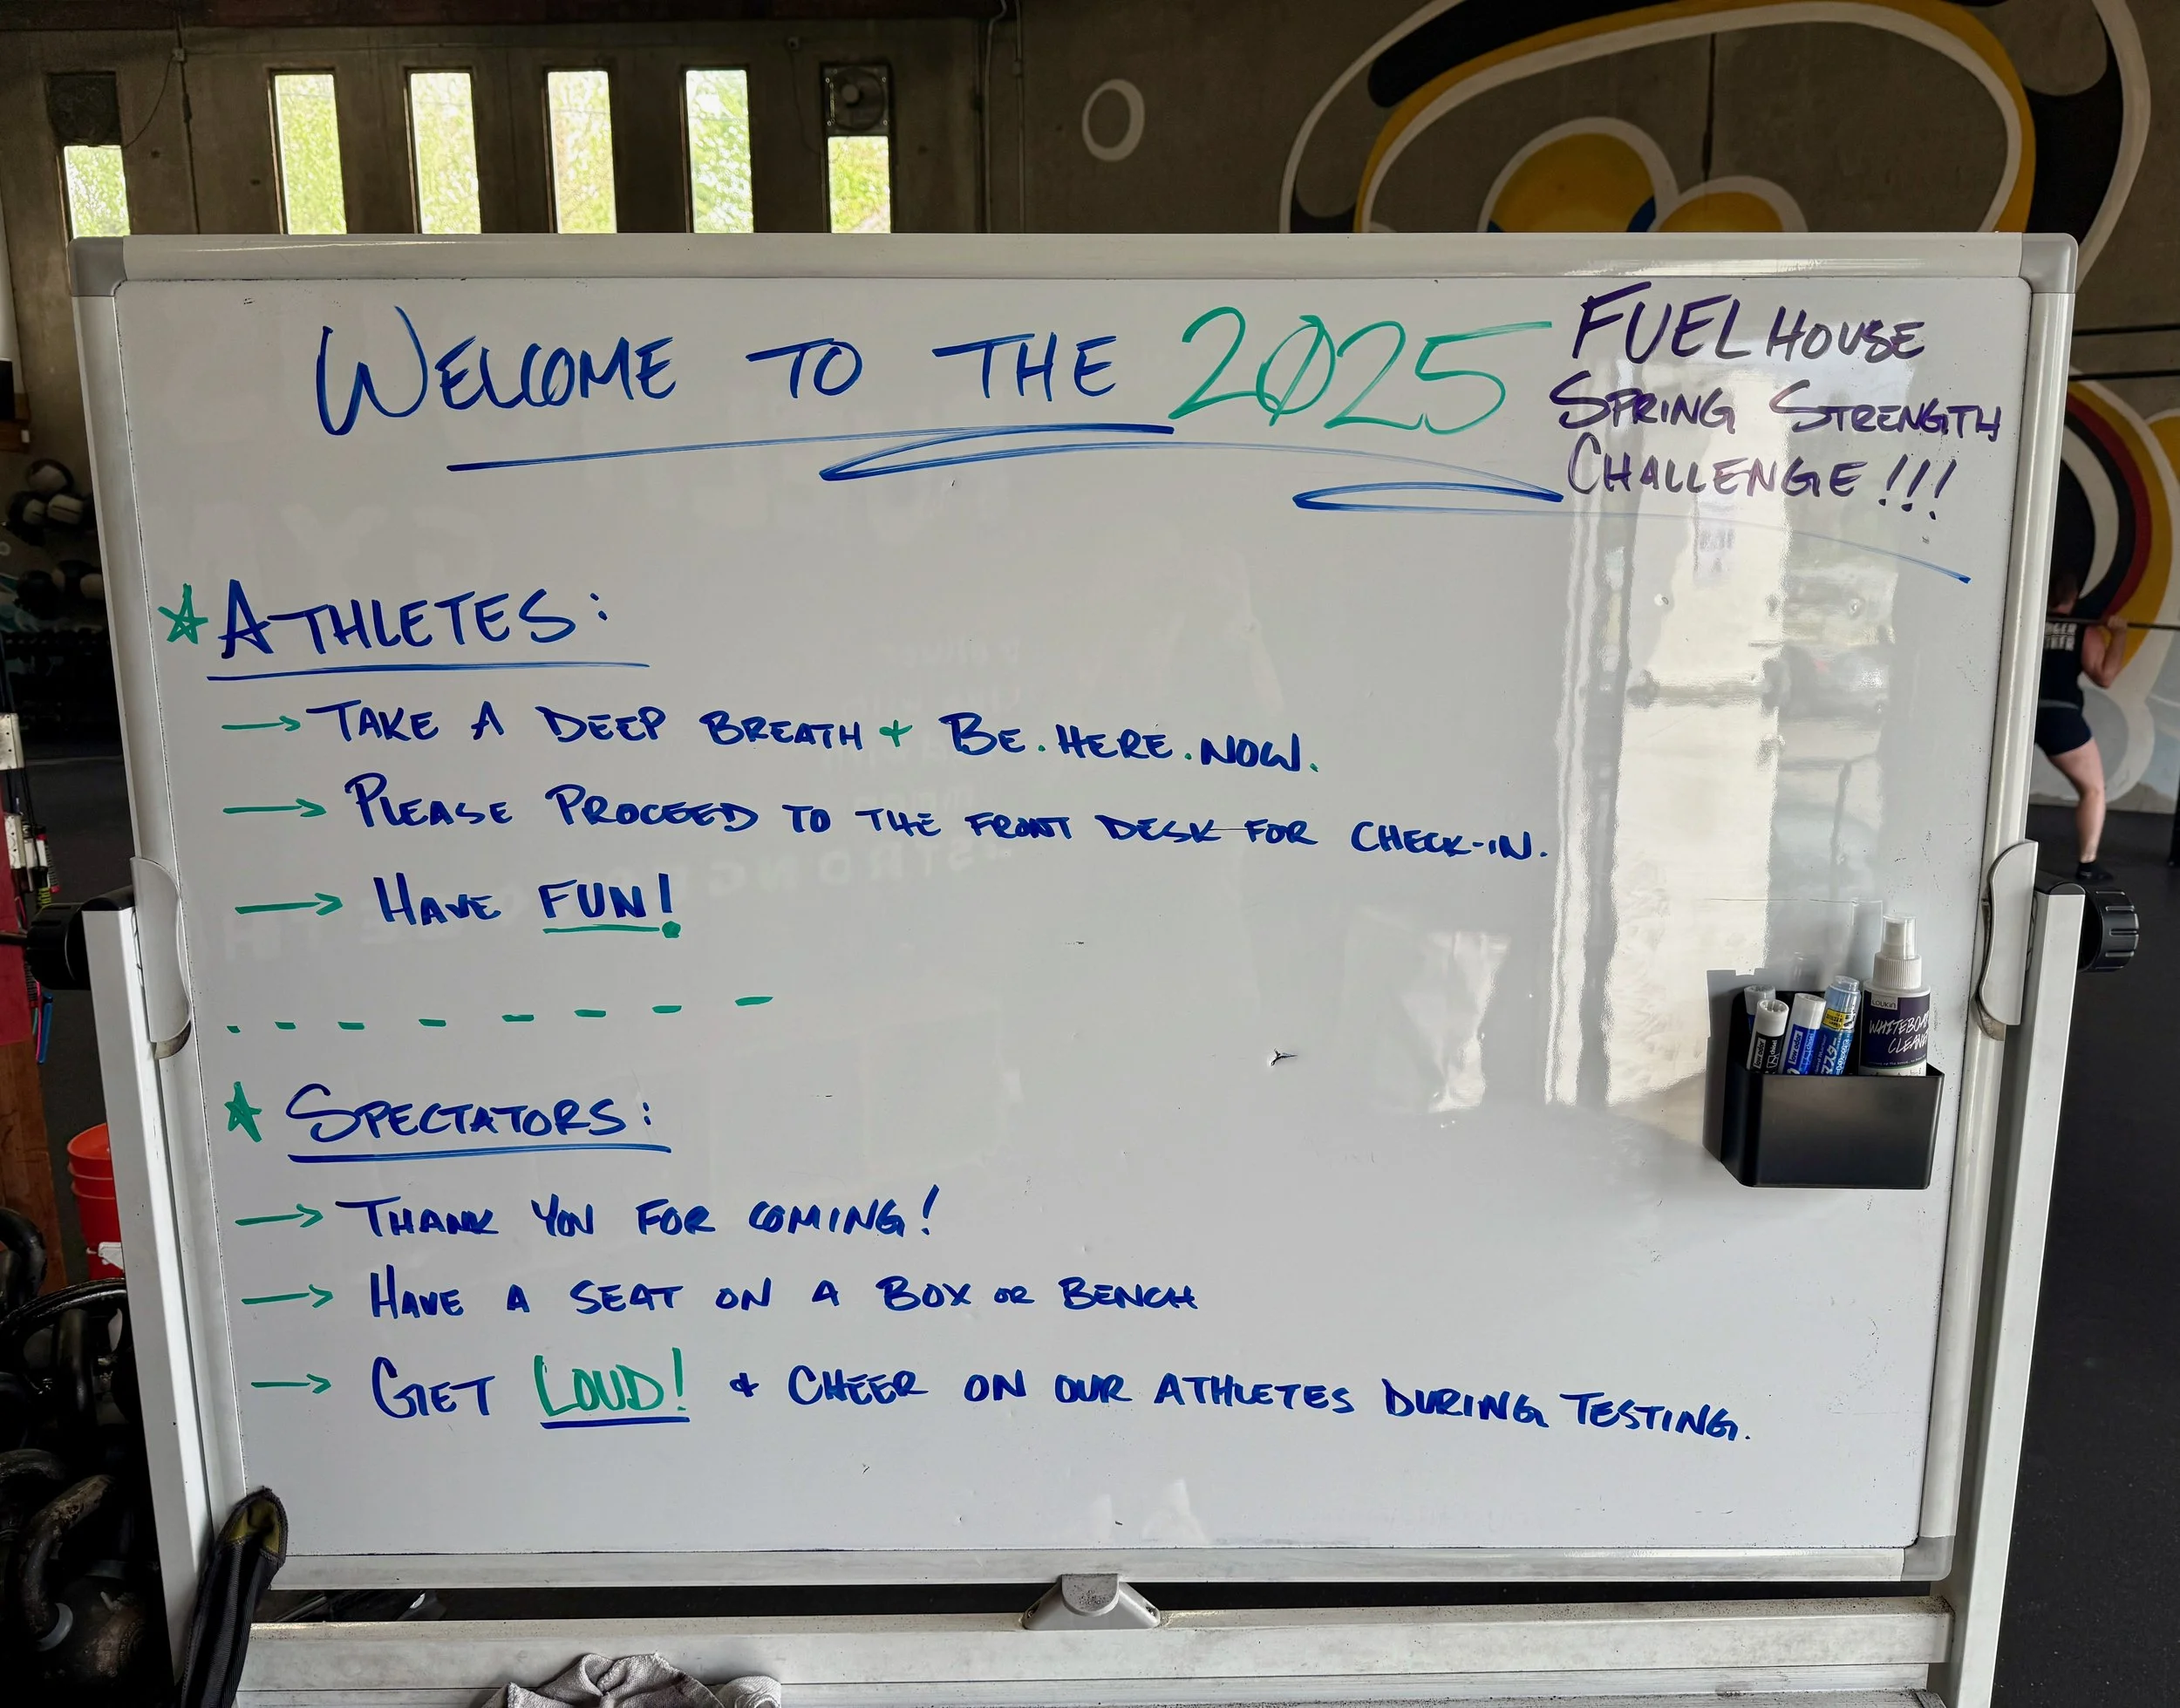 WELCOME TO THE 2025 FUEL HOUSE
SPRING STRENGTH
CHALLENGE!!!
☆ ATHLETES:
→ TAKE A DEEP BREATH & BE.HERE.NOW.
→ PLEASE PROCEED TO THE FRONT DESK FOR CHECK-IN.
→ HAVE FUN!
☆ SPECTATORS:
→ THANK YOU FOR COMING!
→ HAVE A SEAT ON A BOX OR BENCH
→ GET LOUD! & CHEER ON OUR ATHLETES DURING TESTING.
LOUKIN
WHITEBOARD
CLEANER